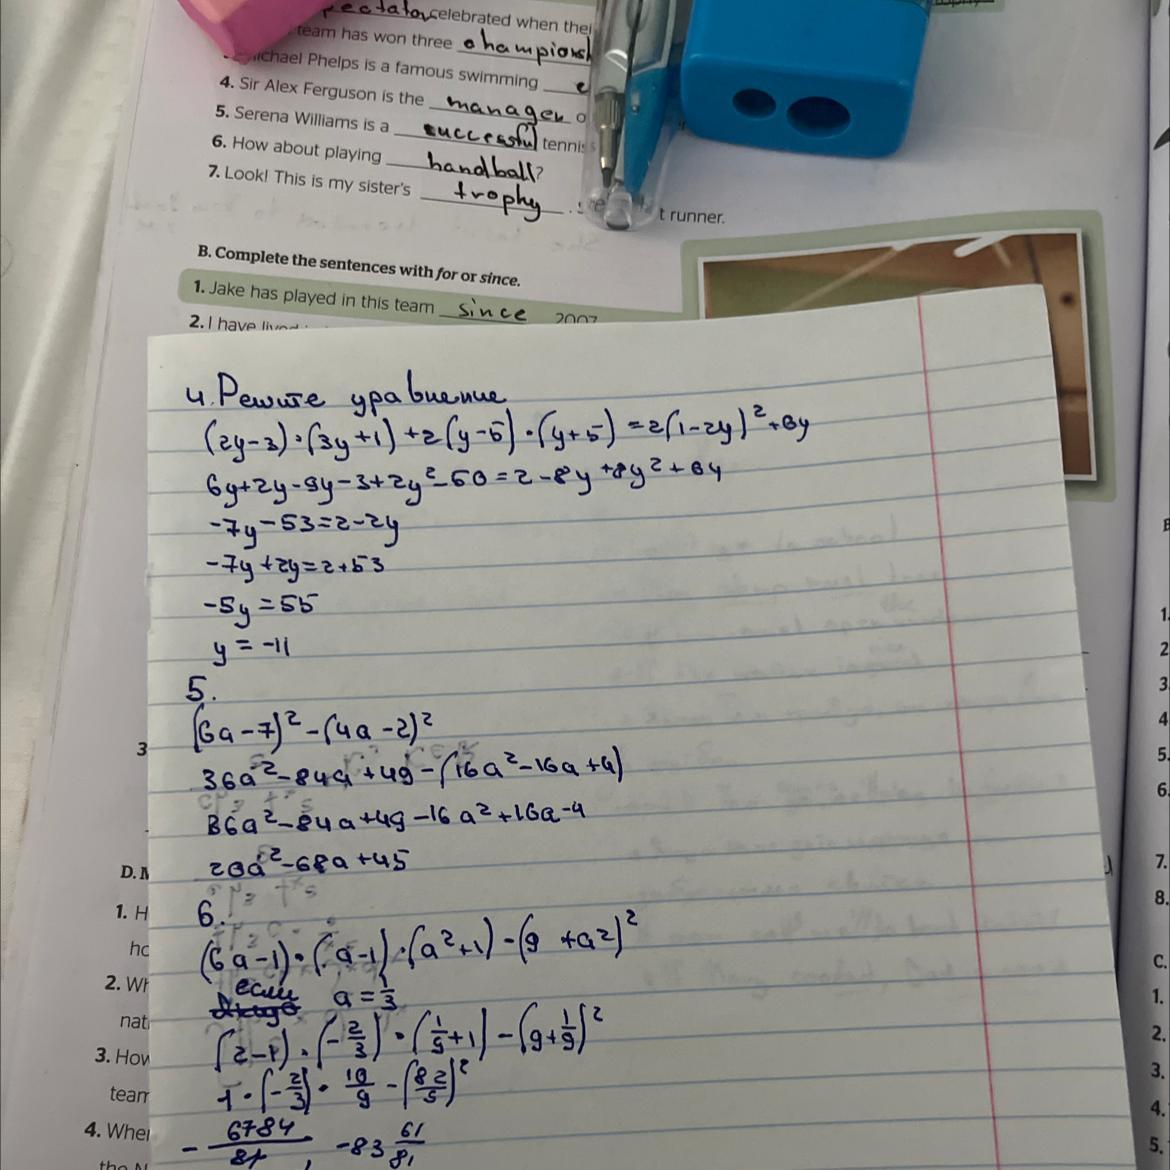 celebrated when thei
team has won three championsh
Michael Phelps is a famous swimming
4. Sir Alex Ferguson is the manager o
5. Serena Williams is a successful tennis
6. How about playing handball?
7. Look! This is my sister's trophy. t runner.
B. Complete the sentences with for or since.
1. Jake has played in this team since 2007
2. I have lived
4. Решите уравнение
(2y-3)·(3y+1)+2(y-5)·(y+5)=2(1-2y)²+6y
6y+2y-9y-3+2y²-50=2-8y+8y²+6y
-7y-53=2-2y
-7y+2y=2+53
-5y=55
y=-11
5.
(6a-7)²-(4a-2)²
36a²-84a+49-(16a²-16a+4)
36a²-84a+49-16a²+16a-4
20a²-68a+45
6.
(6a-1)·(a-1)·(a²+1)-(9+a2)²
если a=1/3
(2-1)·(-2/3)·(1/9+1)-(9+1/9)²
1·(-2/3)·10/9-(82/9)²
-6784/81, -83 61/81
3
D. M
1. H
ho
2. Wh
nat
3. How
team
4. When
the N
B
1.
2
3
4
5.
6.
7.
8.
C.
1.
2.
3.
4.
5.